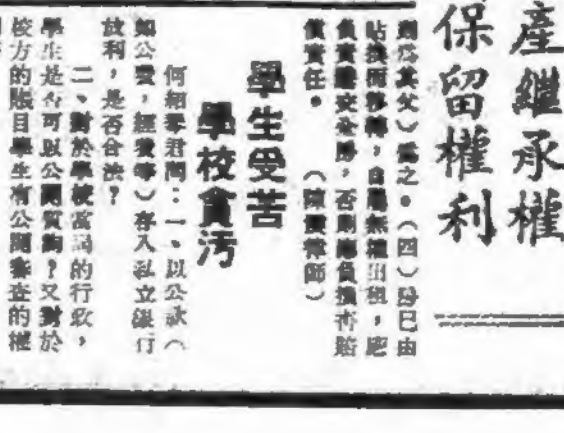 產繼承權
保留權利
貼換而移轉,自屬無權出租,應
負責交全勝,否則應負損害賠
償責任。
學生受苦
學校貪污
何紹賢君問:一、以公款(
如公費,經費等)存入私立銀行
放利,是否合法?
二、對於學校當局的行政,
學生是否可以公開質詢?又對於
校方的賬目學生有公開審查的權